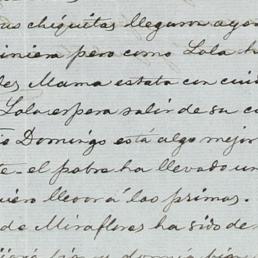 chiquitas llegaron ayer
pero como Lola h
Mama estaba con cuid
Lola espera salir de su c
Domingo está algo mejor
te - el pobre ha llevado un
llevar á las primas.
de Miraflores ha sido de